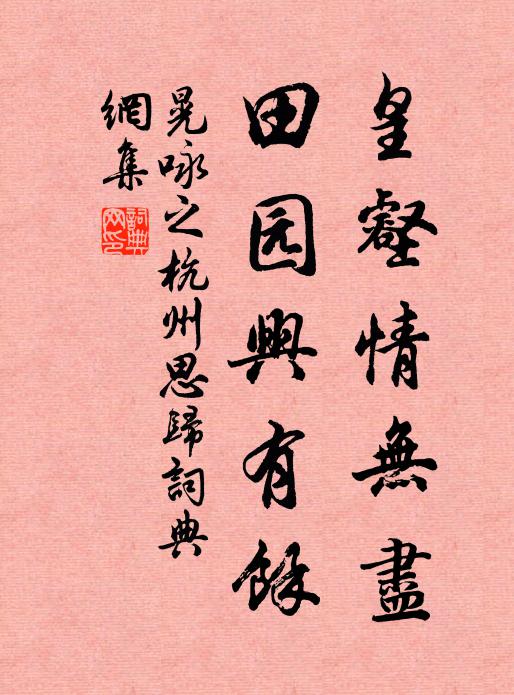 皇壑情無盡
田园興有餘
晁咏之杭州思歸詞典
網集
詞典
网印